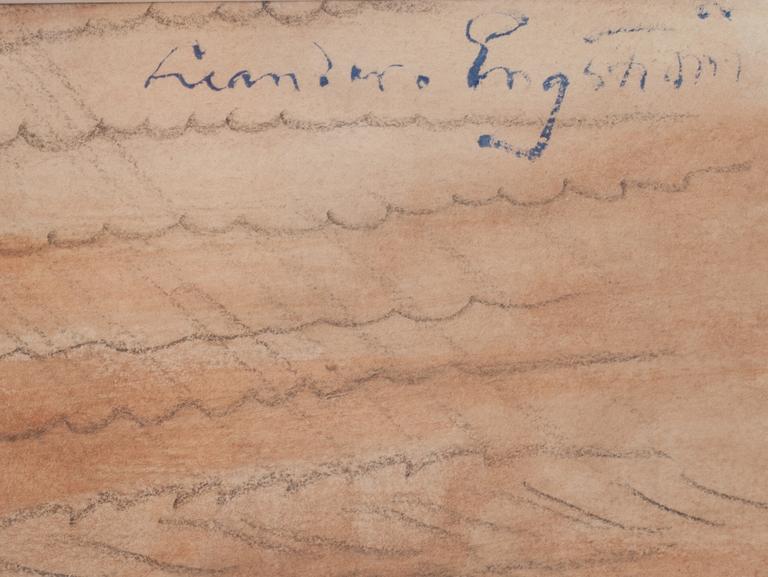 Leander. Engström